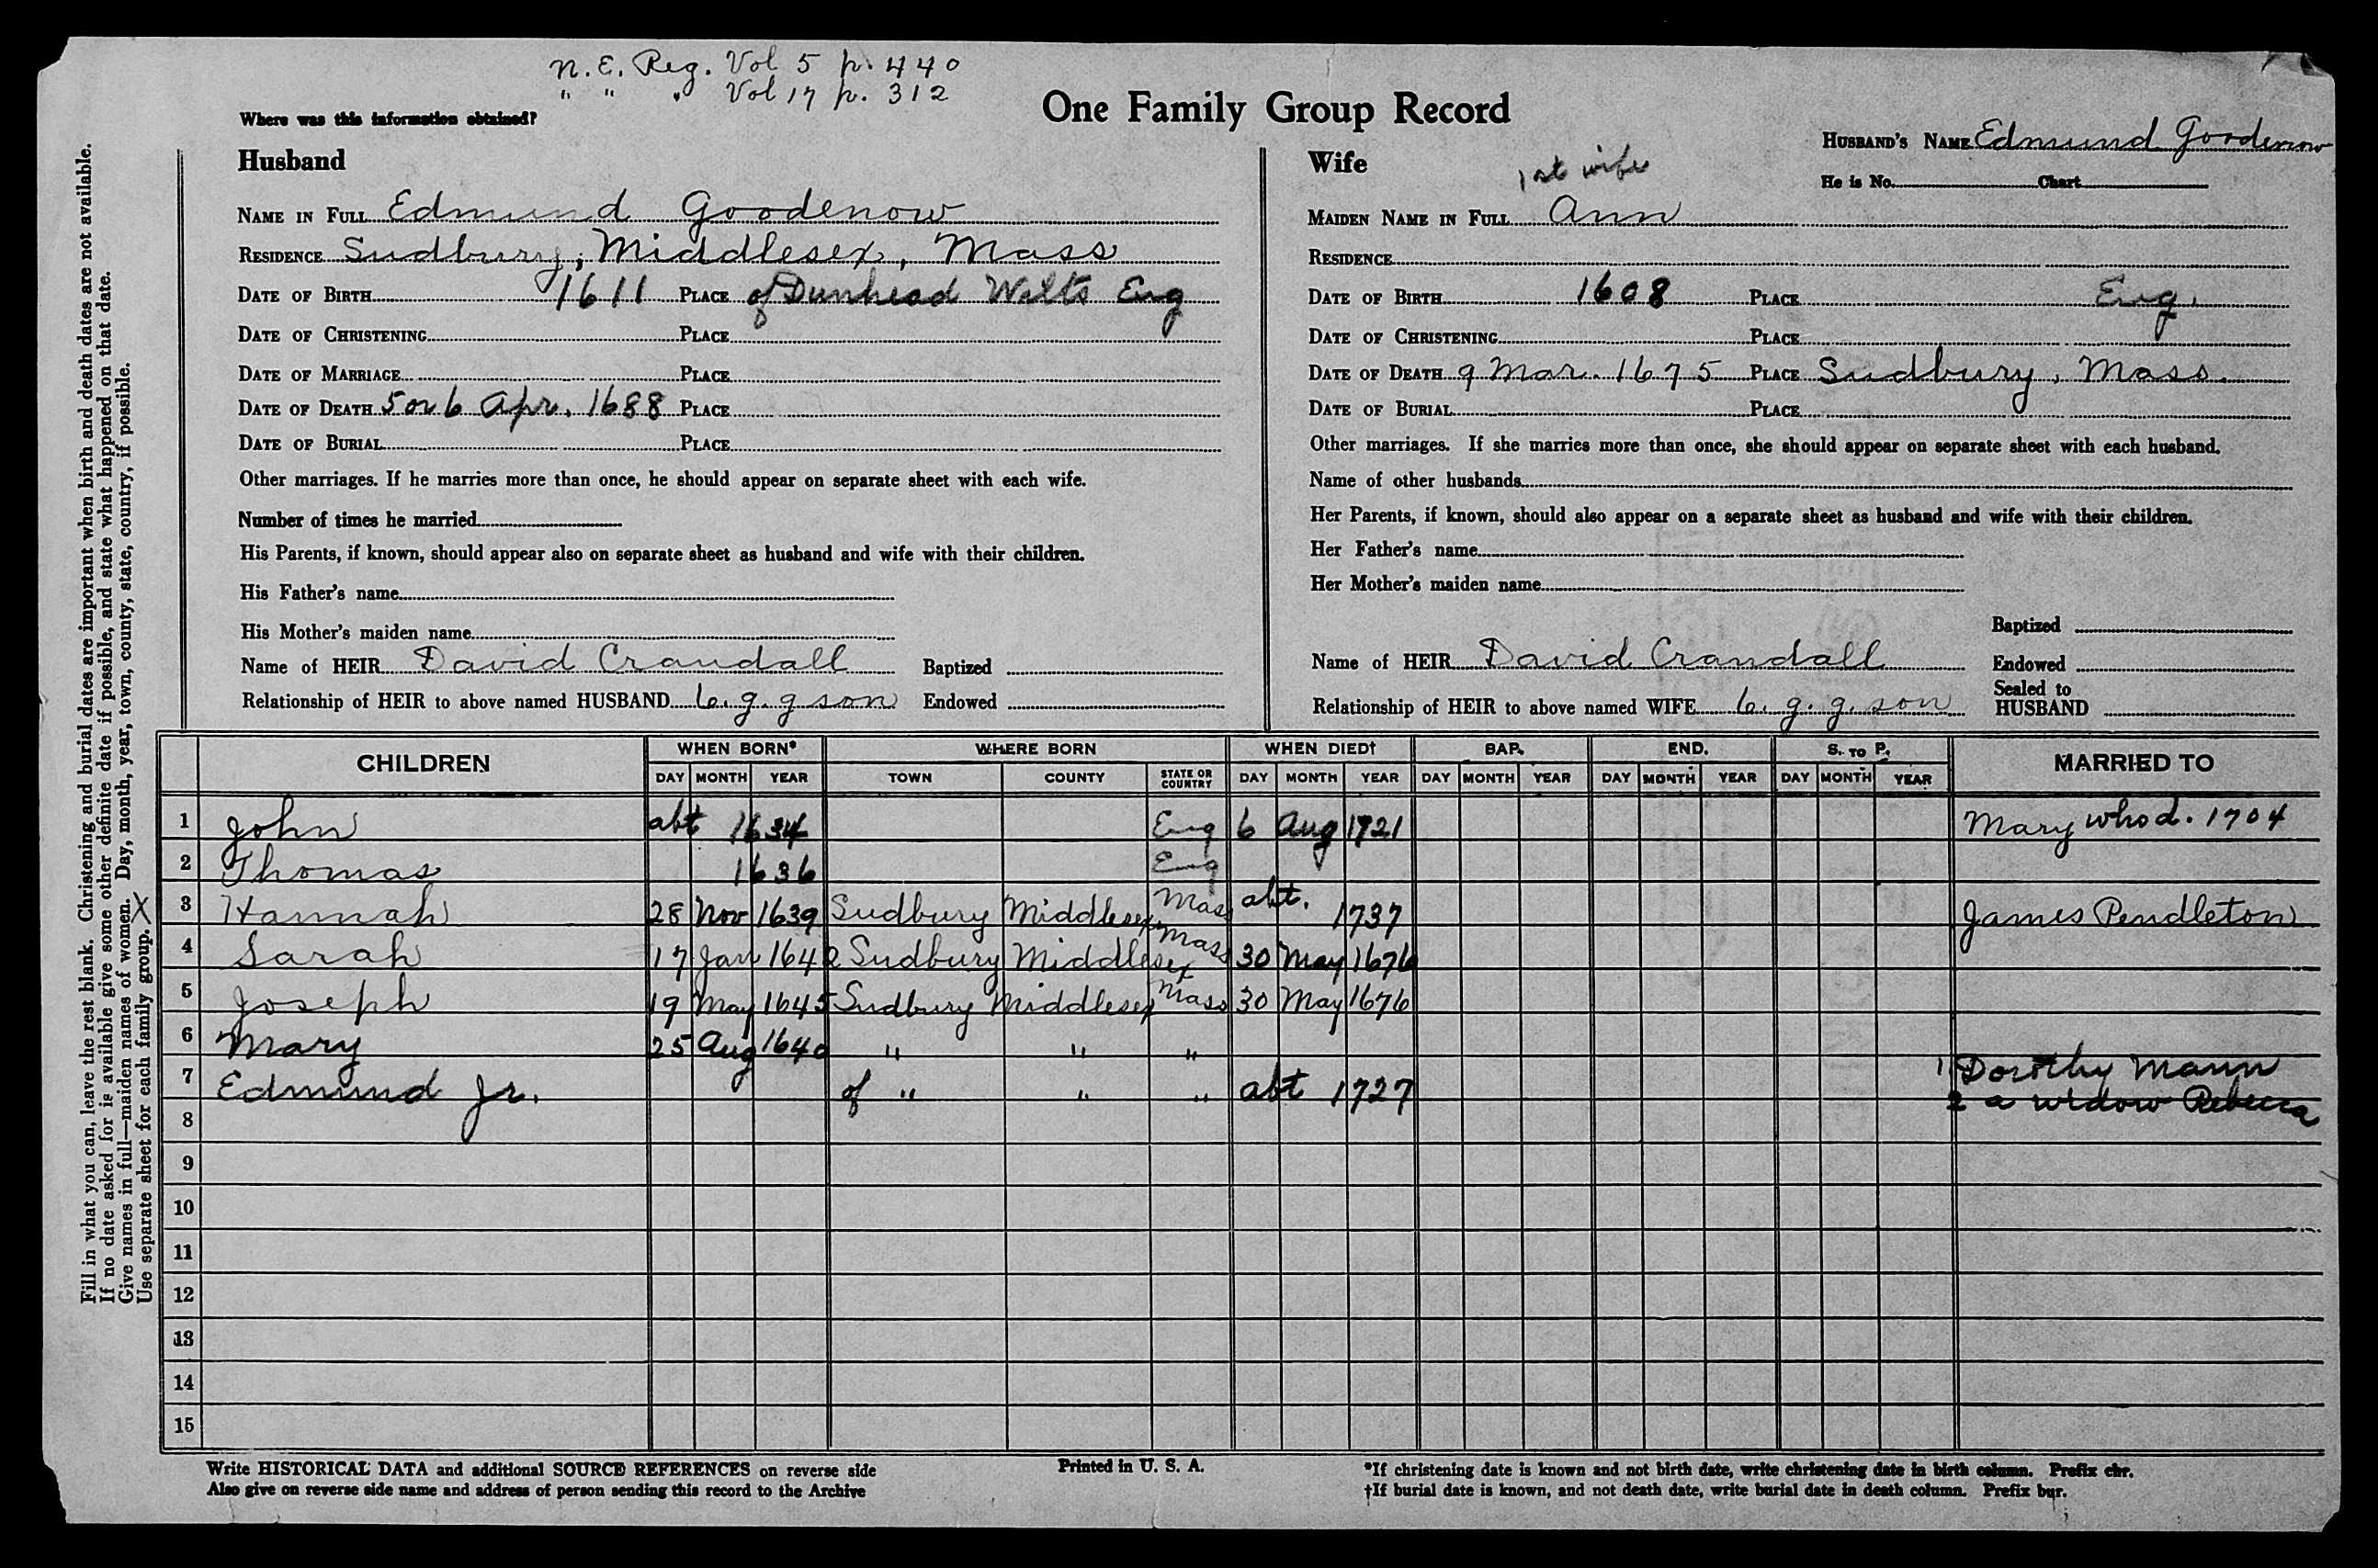 N. E. Reg. Vol 5 p. 440
" " " Vol 17 p. 312
Where was this information obtained?
One Family Group Record
HUSBAND'S NAME Edmund Goodenow
He is No. Chart
Husband
NAME IN FULL Edmund Goodenow
RESIDENCE Sudbury, Middlesex, Mass
DATE OF BIRTH 1611 PLACE of Dunhead Wilts Eng
DATE OF CHRISTENING PLACE
DATE OF MARRIAGE PLACE
DATE OF DEATH 5 or 6 Apr. 1688 PLACE
DATE OF BURIAL PLACE
Other marriages. If he marries more than once, he should appear on separate sheet with each wife.
Number of times he married
His Parents, if known, should appear also on separate sheet as husband and wife with their children.
His Father's name
His Mother's maiden name
Name of HEIR David Crandall Baptized
Relationship of HEIR to above named HUSBAND 6. g. g son Endowed
Wife
1st wife
MAIDEN NAME IN FULL Ann
RESIDENCE
DATE OF BIRTH 1608 PLACE Eng.
DATE OF CHRISTENING PLACE
DATE OF DEATH 9 Mar. 1675 PLACE Sudbury, Mass.
DATE OF BURIAL PLACE
Other marriages. If she marries more than once, she should appear on separate sheet with each husband.
Name of other husbands
Her Parents, if known, should also appear on a separate sheet as husband and wife with their children.
Her Father's name
Her Mother's maiden name
Baptized
Name of HEIR David Crandall Endowed
Relationship of HEIR to above named WIFE 6. g. g. son Sealed to HUSBAND
CHILDREN WHEN BORN* WHERE BORN WHEN DIED† BAP. END. S. TO P. MARRIED TO
DAY MONTH YEAR TOWN COUNTY STATE OR COUNTRY DAY MONTH YEAR DAY MONTH YEAR DAY MONTH YEAR DAY MONTH YEAR
1 John abt 1634 Eng 6 Aug 1721 Mary who d. 1704
2 Thomas 1636 Eng
3 Hannah 28 Nov 1639 Sudbury Middlesex Mass abt. 1737 James Pendleton
4 Sarah 17 Jan 1642 Sudbury Middlesex Mass 30 May 1676
5 Joseph 19 May 1645 Sudbury Middlesex Mass 30 May 1676
6 Mary 25 Aug 1640 " " "
7 Edmund Jr. of " " " abt 1727 1 Dorothy Mann
8 2 a widow Rebecca
9
10
11
12
13
14
15
Write HISTORICAL DATA and additional SOURCE REFERENCES on reverse side
Also give on reverse side name and address of person sending this record to the Archive
Printed in U. S. A.
*If christening date is known and not birth date, write christening date in birth column. Prefix chr.
†If burial date is known, and not death date, write burial date in death column. Prefix bur.
Fill in what you can, leave the rest blank. Christening and burial dates are important when birth and death dates are not available.
If no date asked for is available give some other definite date if possible, and state what happened on that date.
Give names in full—maiden names of women. Day, month, year, town, county, state, country, if possible.
Use separate sheet for each family group. X